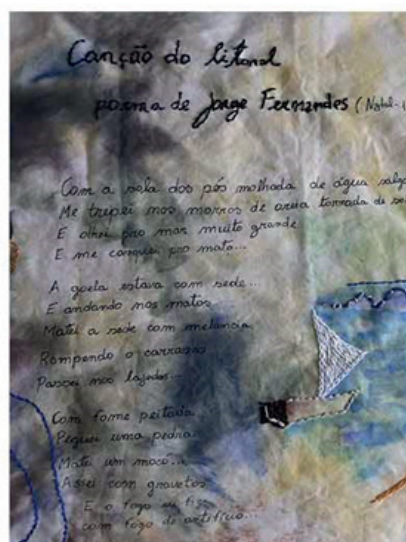 Canção do litoral
poema de Jorge Fernandes (Natal-
Com a sola dos pés molhada de água salga
Me trepei nos morros de areia torrada de so
E olrei pro mar muito grande
E me danquei pro mato...
A goela estava com sede...
E andando nos matos
Matei a sede com melancia
Rompendo o carrasco
Passei nos lajedos...
Com fome peitada
Peguei uma pedra
Matei um mocó...
Assei com gravetos
E o fogo eu fiz
com fogo de artifício...